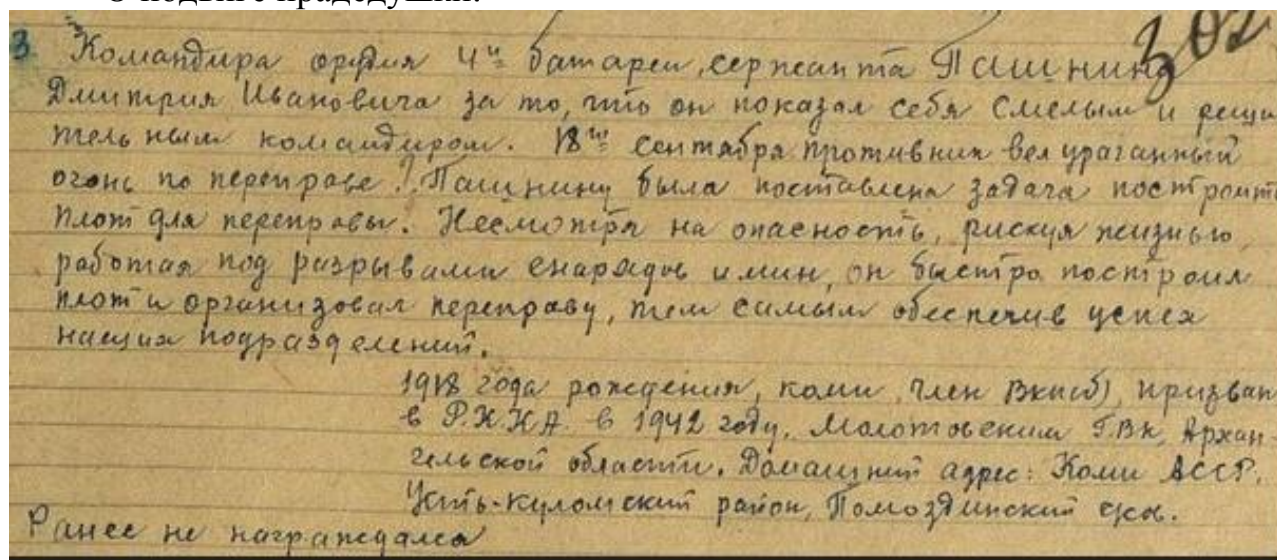 О подвиге прадедушки.
302
3. Командира орудия 4й батареи, сержанта Пашнина
Дмитрия Ивановича за то, что он показал себя смелым и реши
тельным командиром. 18го сентября противник вел ураганный
огонь по переправе. Пашнину была поставлена задача построить
плот для переправы. Несмотря на опасность, рискуя жизнью,
работая под разрывами снарядов и мин, он быстро построил
плот и организовал переправу, тем самым обеспечив успех
наших подразделений.
1918 года рождения, коми, член ВКП(б), призван
в Р.К.К.А. в 1942 году, Молотовским ГВК, Архан-
гельской области. Домашний адрес: Коми АССР,
Усть-Куломский район, Помоздинский с/с.
Ранее не награждался